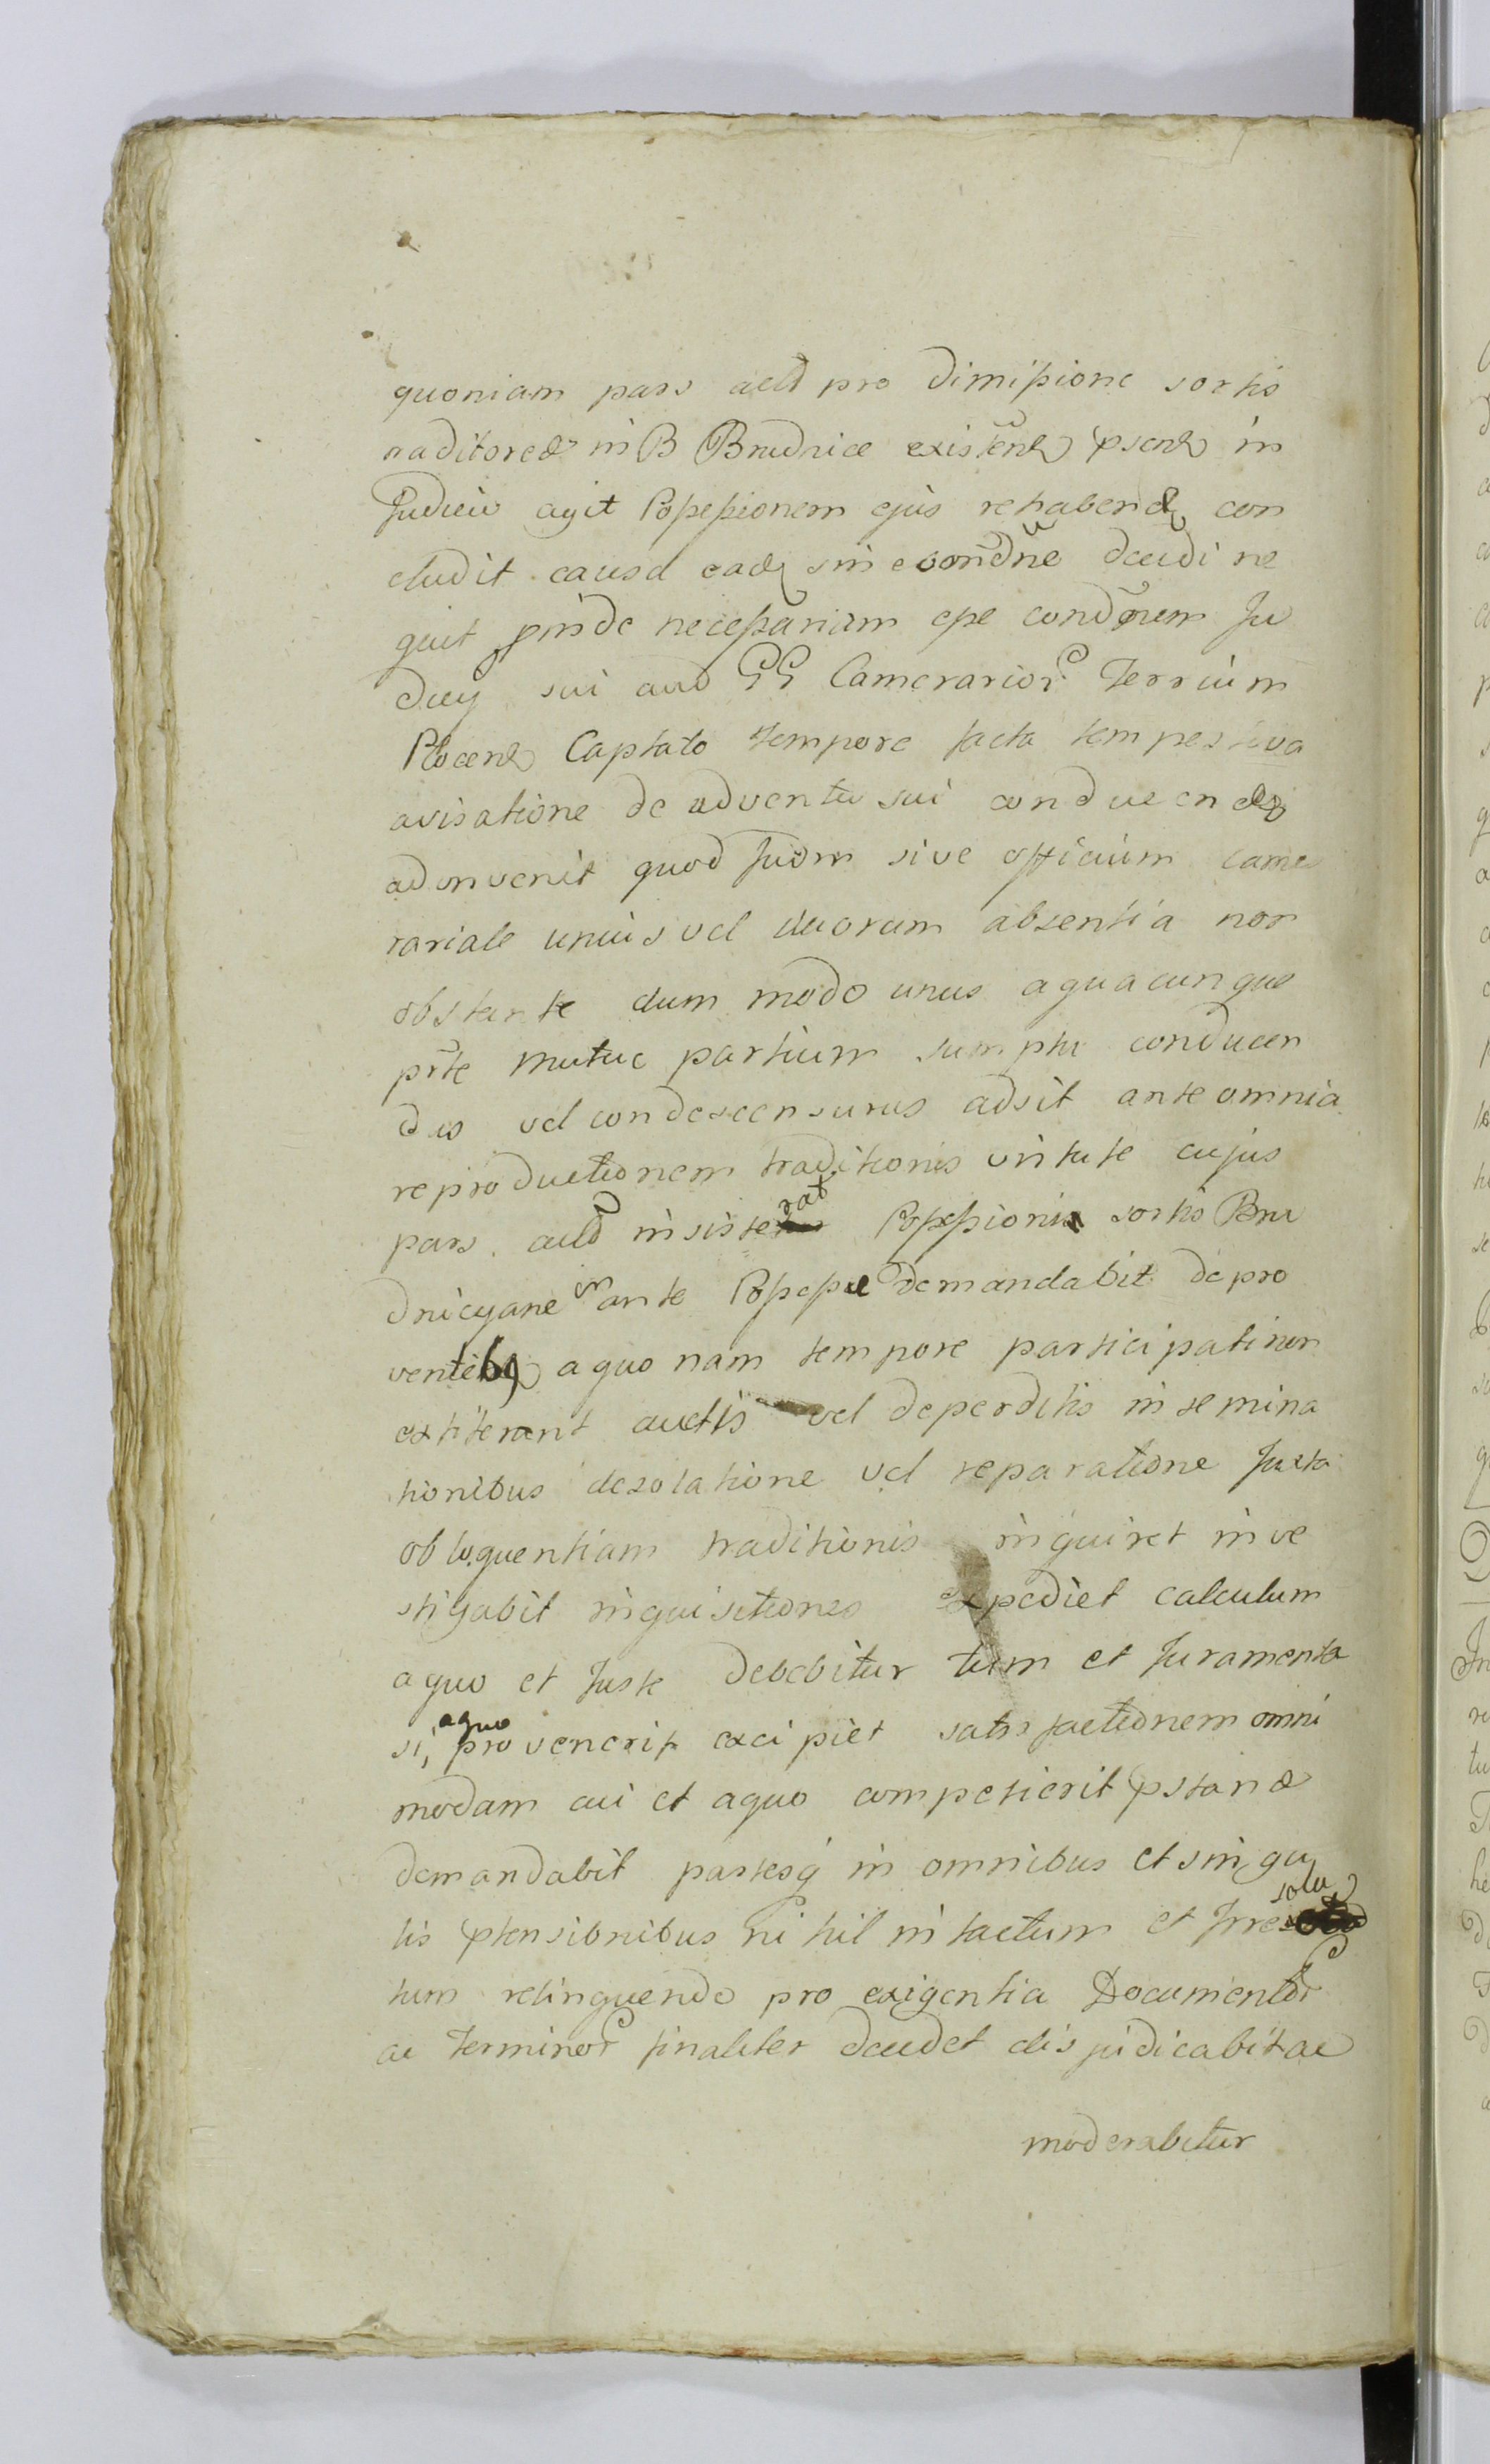 quoniam pars actd pro dimissione sortis
traditored in B Brudnice existen psen in
Judicio agit Possessionem ejus rehabend con
cludit causa ead sine condne decidi ne
quit proinde necessariam esse condnem Ju
dicy sui aut GG Camerarior Terrium
Plocen Captato tempore facta tempestiva
avisatione de adventu sui conducendo
adinvenit quod Judm sive officium came
rariale unius vel duorum absentia non
obstante dum modo unus aquacunque
prte mutuc partium sumptu conducen
dus vel condescensurus adsit ante omnia
reproductionem traditionis virtute cujus
pars actd insisterat Possessioni sortis Bru
dnicyane ante Possessae demandabit de pro
ventibq aquo nam tempore participati non
extiterunt auctis vel deperditis insemina
tionibus desolatione vel reparatione Juxta
obloquentiam traditionis inquiret inve
stigabit inquisitiones expediet calculum
aquo et Juste debebitur tum et Juramenta
si, aquo provenerit excipiet satisfactionem omni
modam cui et aquo competierit pstand
demandabit partesq in omnibus et singu
lis ptensionibus nihil intactum et Irresolu
tum relinquendo pro exigentia Documentor
ac Terminor finaliter decidet disjudicabit ac
moderabitur